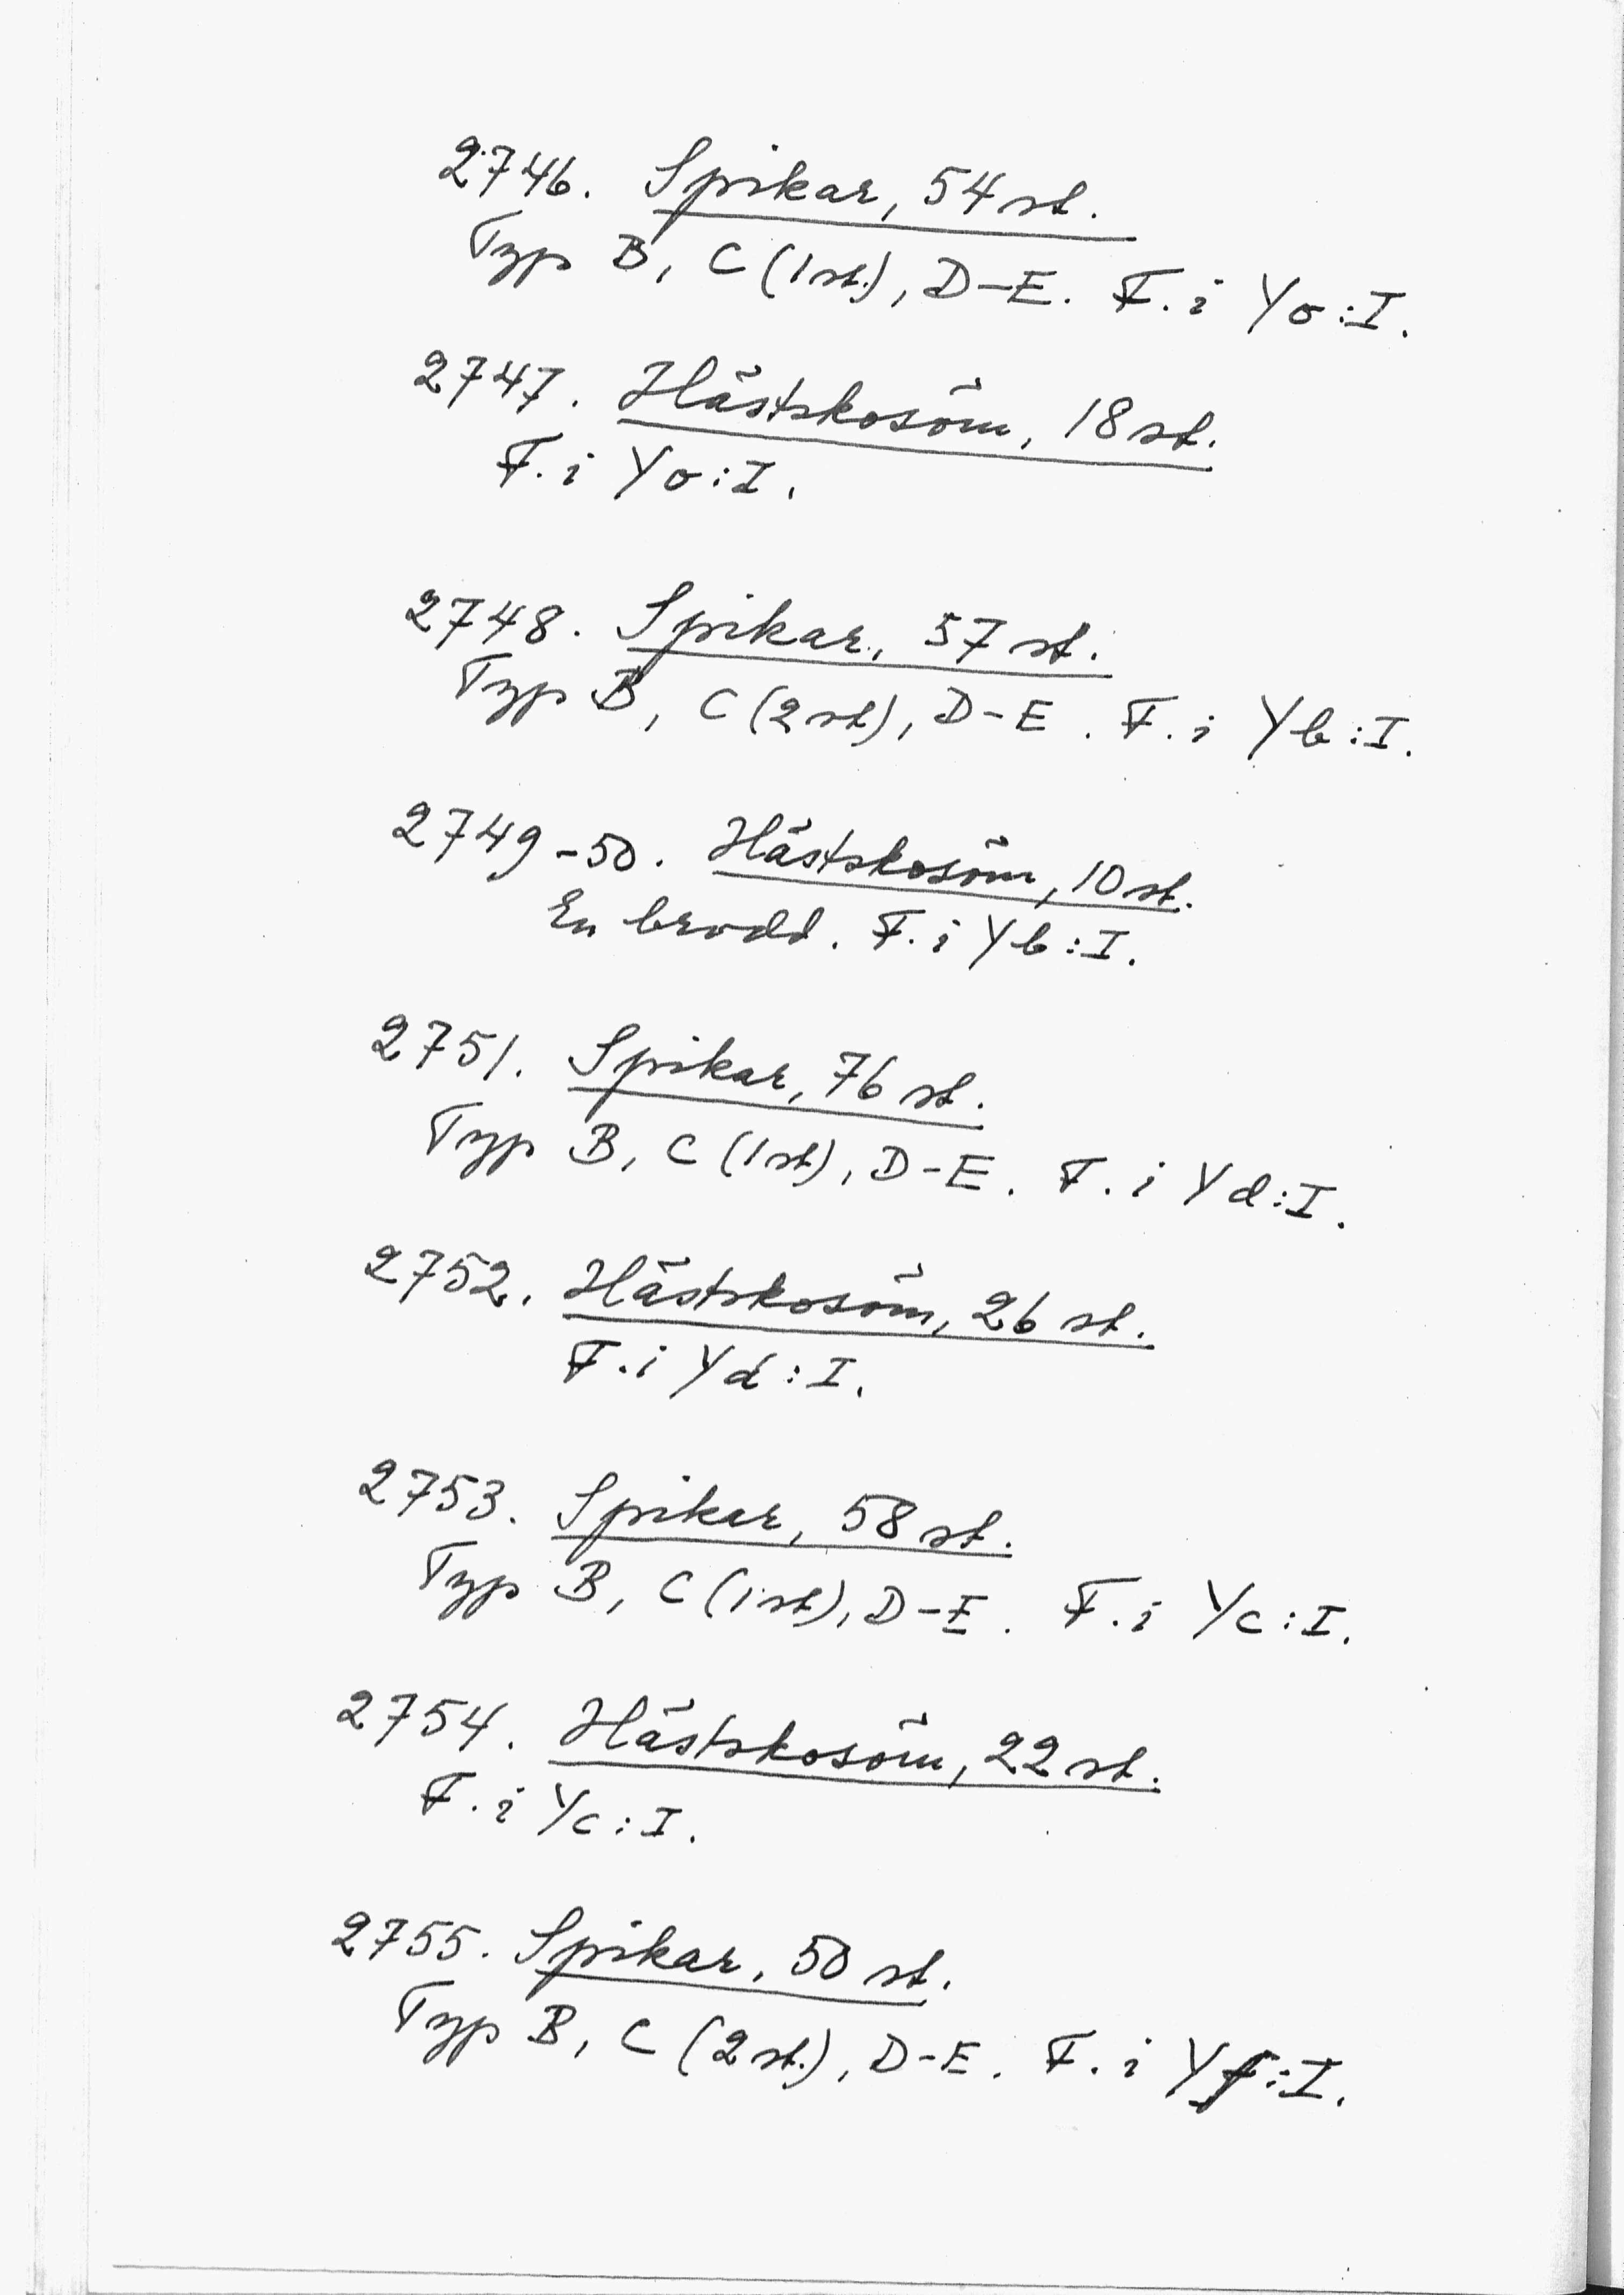 2746. Spikar, 54 st.
Typ B, C (1 st.), D-E. F. i Yo:I.
2747. Hästskosöm, 18 st.
F. i Yo:I.
2748. Spikar, 57 st.
Typ B, C (2 st), D-E. F. i Yb:I.
2749-50. Hästskosöm, 10 st.
En brodd. F. i Yb:I.
2751. Spikar, 76 st.
Typ B, C (1 st), D-E. F. i Yd:I.
2752. Hästskosöm, 26 st.
F. i Yd:I.
2753. Spikar, 58 st.
Typ B, C (1 st), D-E. F. i Yc:I.
2754. Hästskosöm, 22 st.
F. i Yc:I.
2755. Spikar, 50 st.
Typ B, C (2 st.), D-E. F. i Yf:I.